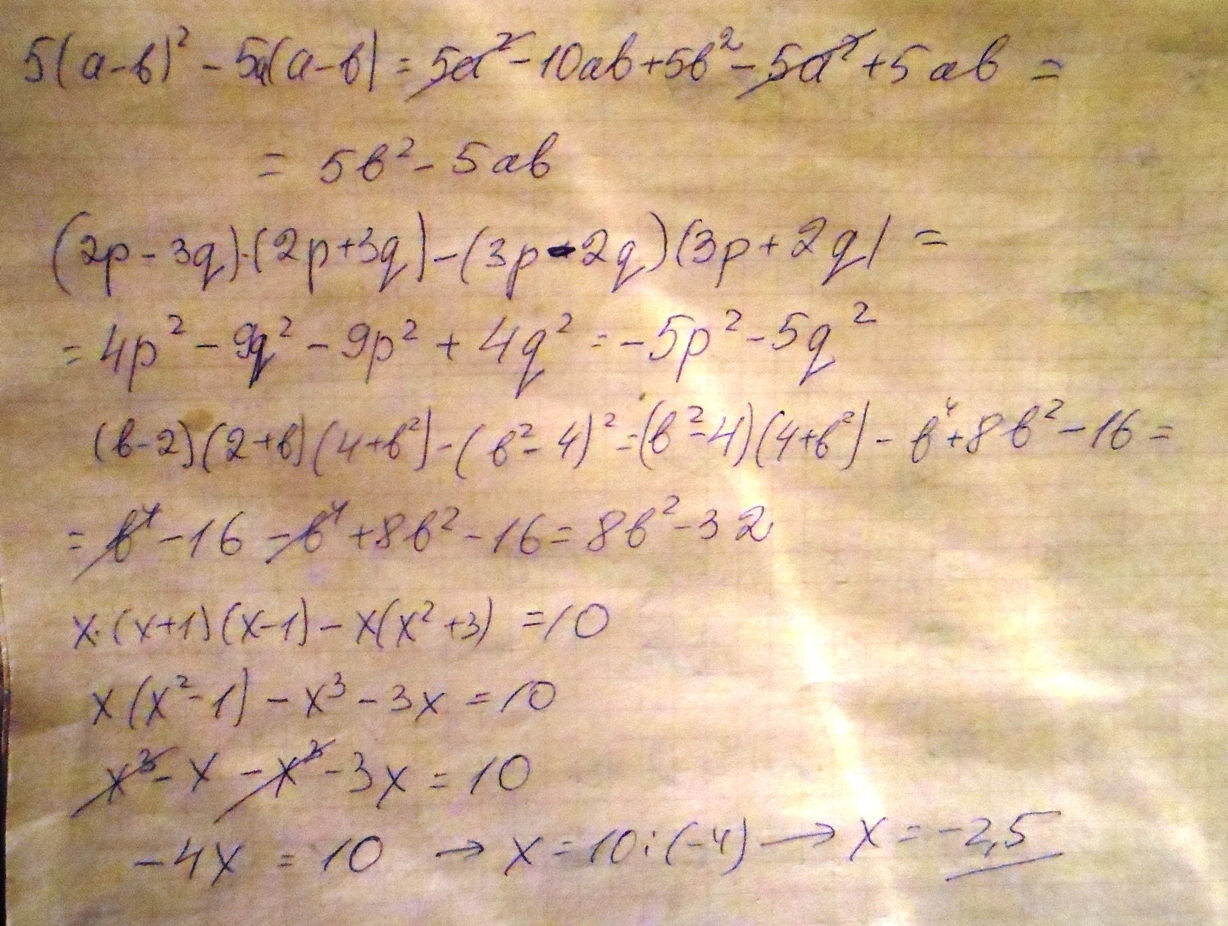 5(a-b)² - 5a(a-b) = 5a² - 10ab + 5b² - 5a² + 5ab =
= 5b² - 5ab
(2p - 3q)·(2p+3q) - (3p - 2q)(3p + 2q) =
= 4p² - 9q² - 9p² + 4q² = -5p² - 5q²
(b-2)(2+b)(4+b²) - (b²-4)² = (b²-4)(4+b²) - b⁴ + 8b² - 16 =
= b⁴ - 16 - b⁴ + 8b² - 16 = 8b² - 32
x·(x+1)(x-1) - x(x²+3) = 10
x(x²-1) - x³ - 3x = 10
x³ - x - x³ - 3x = 10
-4x = 10 → x = 10:(-4) → x = -2,5